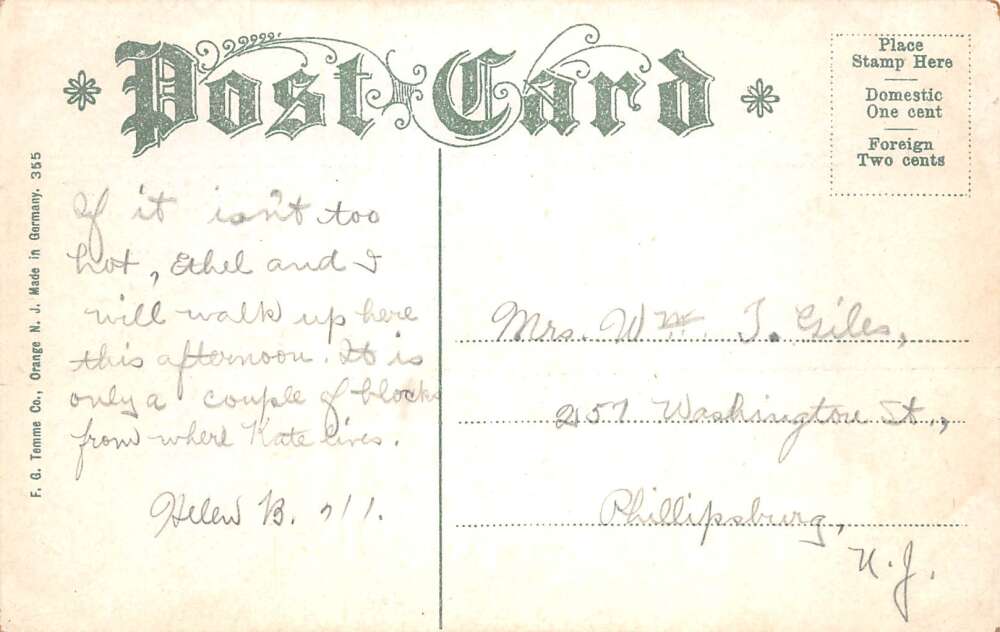 Post Card
Place
Stamp Here
Domestic
One cent
Foreign
Two cents
F. G. Temme Co., Orange N. J. Made in Germany. 355
If it isn't too
hot, Ethel and I
will walk up here
this afternoon. It is
only a couple of blocks
from where Kate lives.
Helen B. '11.
Mrs. Wm. T. Giles,
257 Washington St.,
Phillipsburg,
N. J.